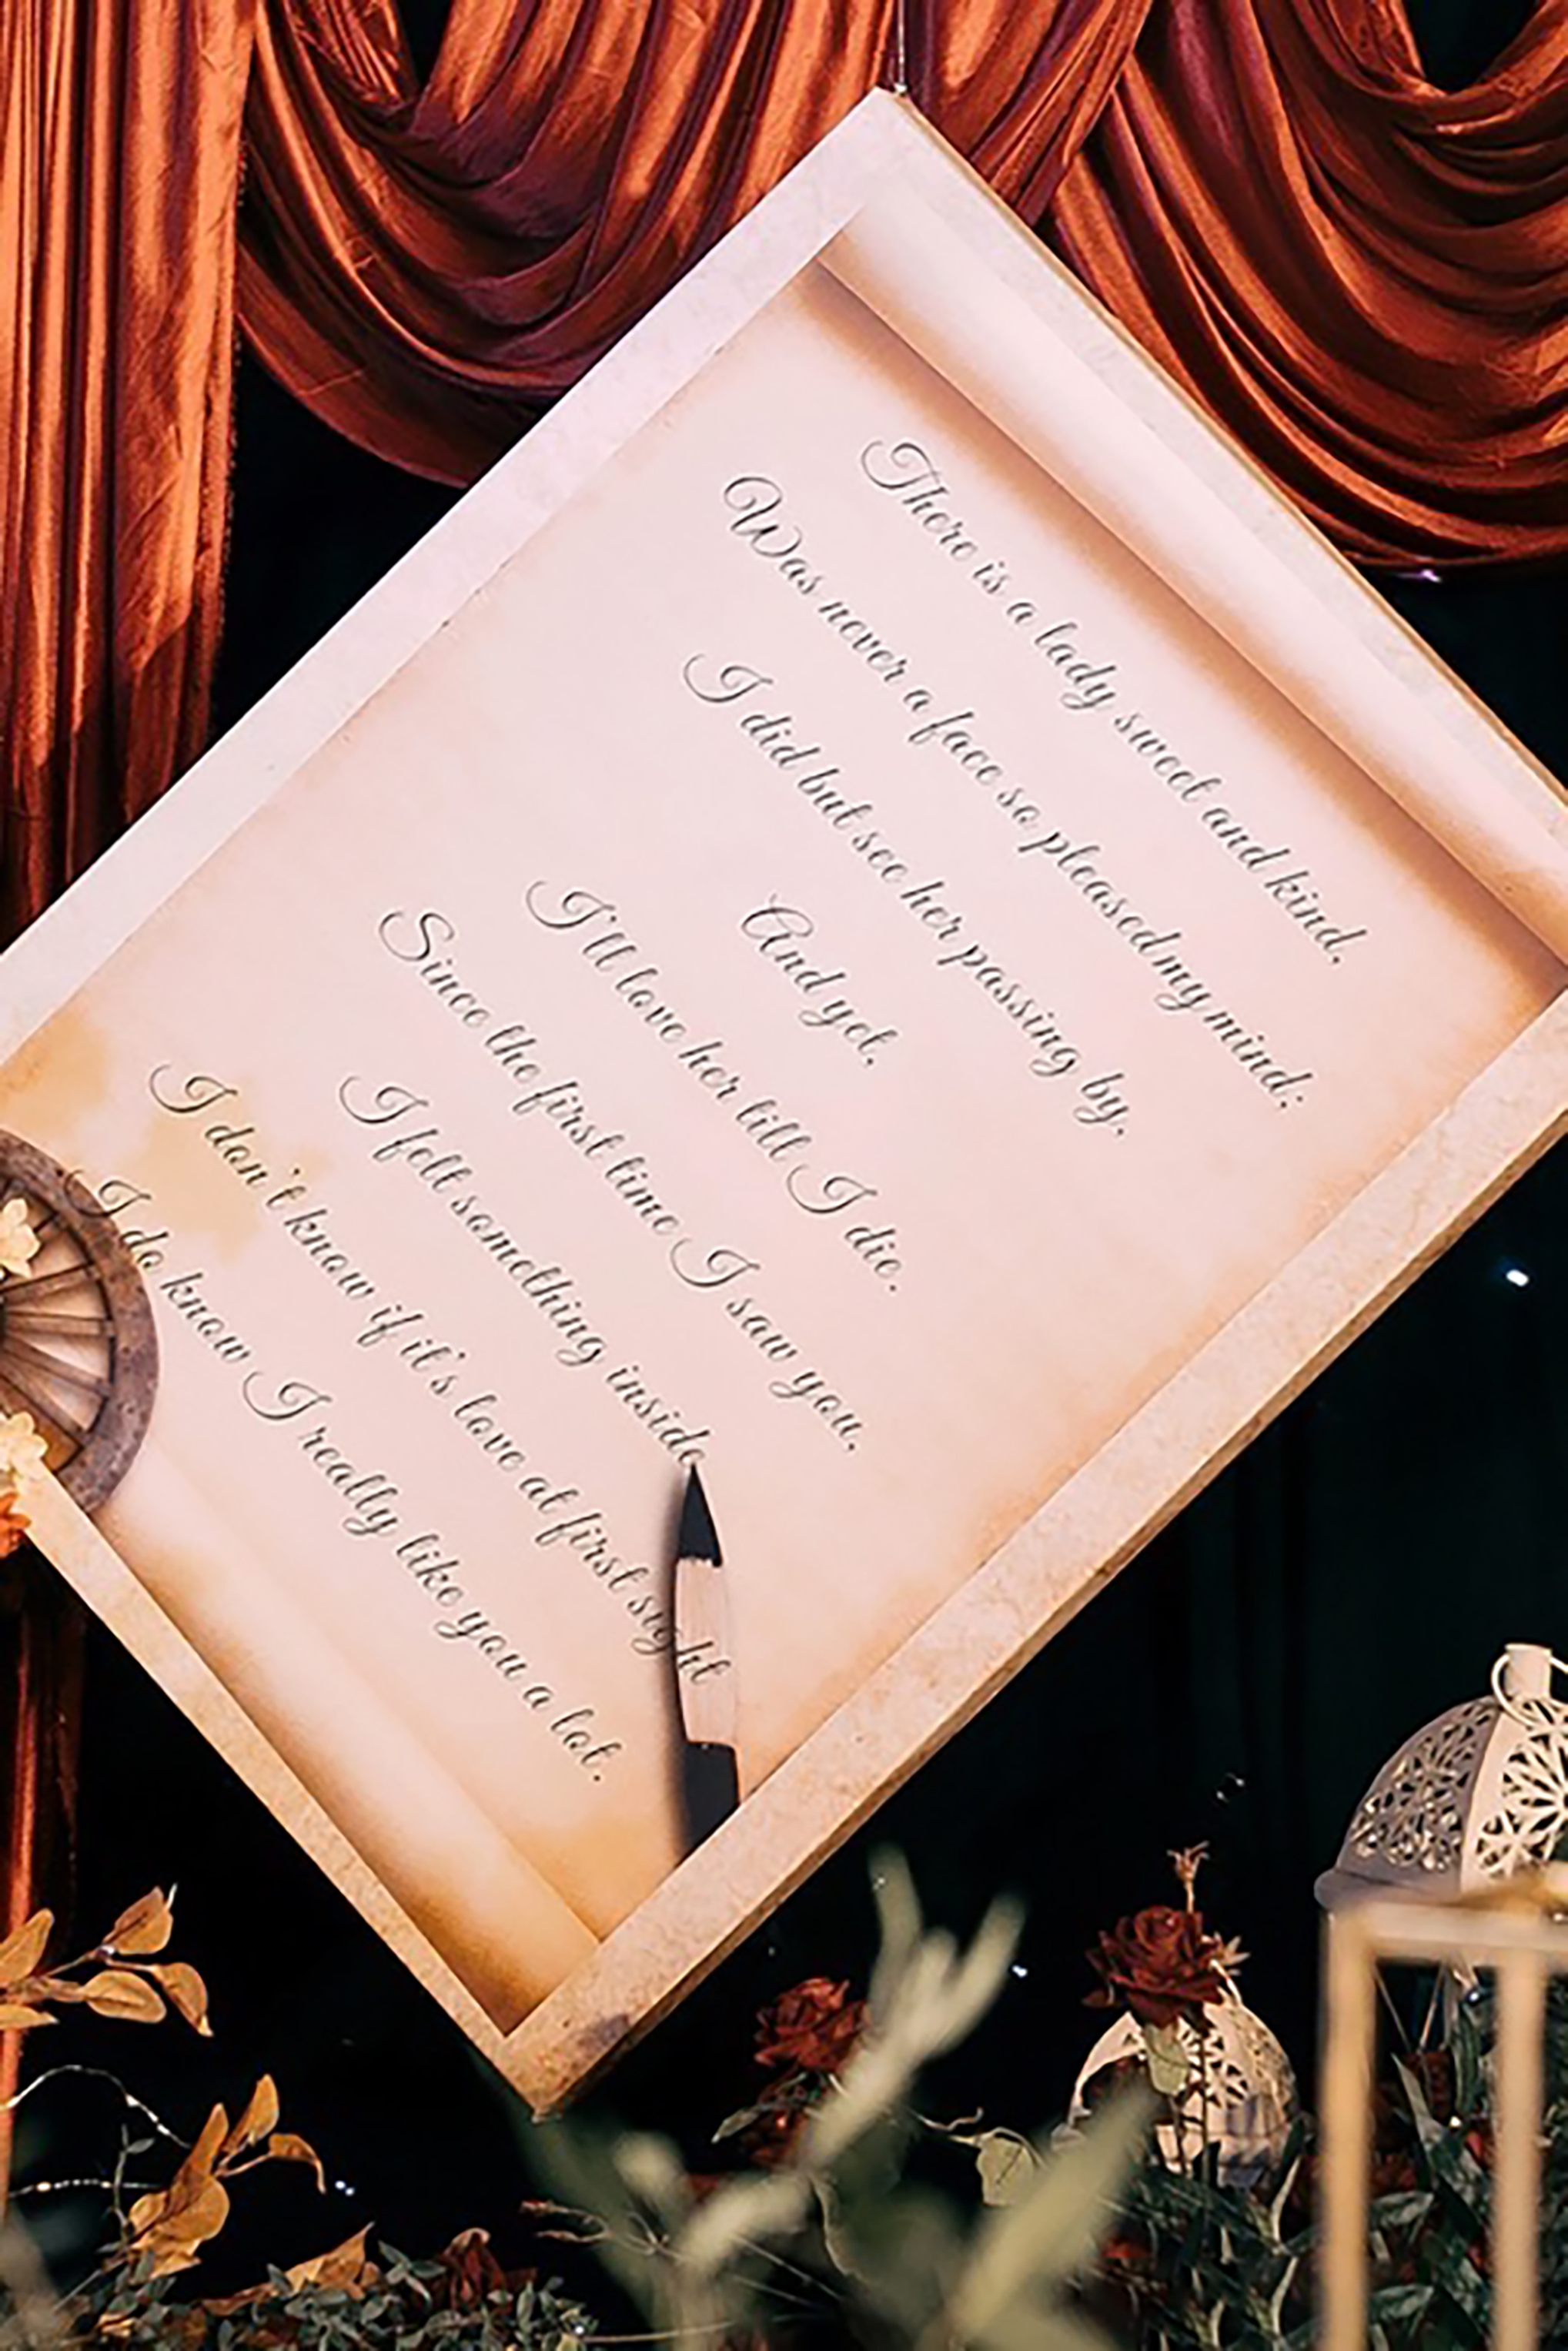 There is a lady sweet and kind,
Was never a face so pleased my mind;
I did but see her passing by,
And yet,
I'll love her till I die.
Since the first time I saw you,
I felt something inside.
I don't know if it's love at first sight
I do know I really like you a lot.